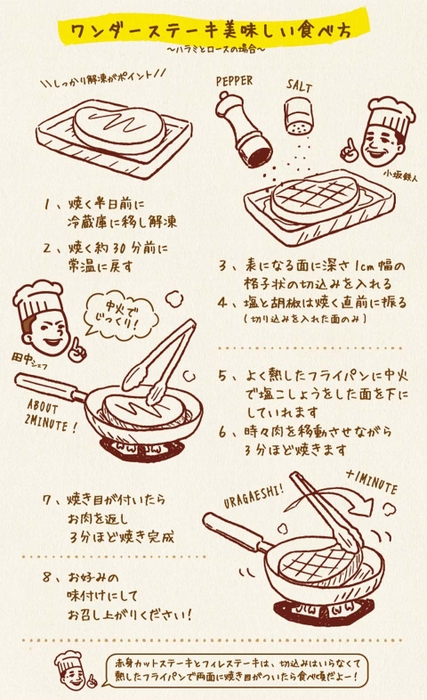 ワンダーステーキ美味しい食べ方
～ハラミとロースの場合～
\\しっかり解凍がポイント//
PEPPER
SALT
小坂鉄人
1、焼く半日前に
冷蔵庫に移し解凍
2、焼く約30分前に
常温に戻す
3、表になる面に深さ1cm幅の
格子状の切込みを入れる
4、塩と胡椒は焼く直前に振る
(切り込みを入れた面のみ)
中火で
じっくり!
田中シェフ
ABOUT
2MINUTE!
5、よく熱したフライパンに中火
で塩こしょうをした面を下に
していれます
6、時々肉を移動させながら
3分ほど焼きます
7、焼き目が付いたら
お肉を返し
3分ほど焼き完成
URAGAESHI!
+1MINUTE
8、お好みの
味付けにして
お召し上がりください!
赤身カットステーキとフィレステーキは、切込みはいらなくて
熱したフライパンで両面に焼き目がついたら食べ頃だよー!